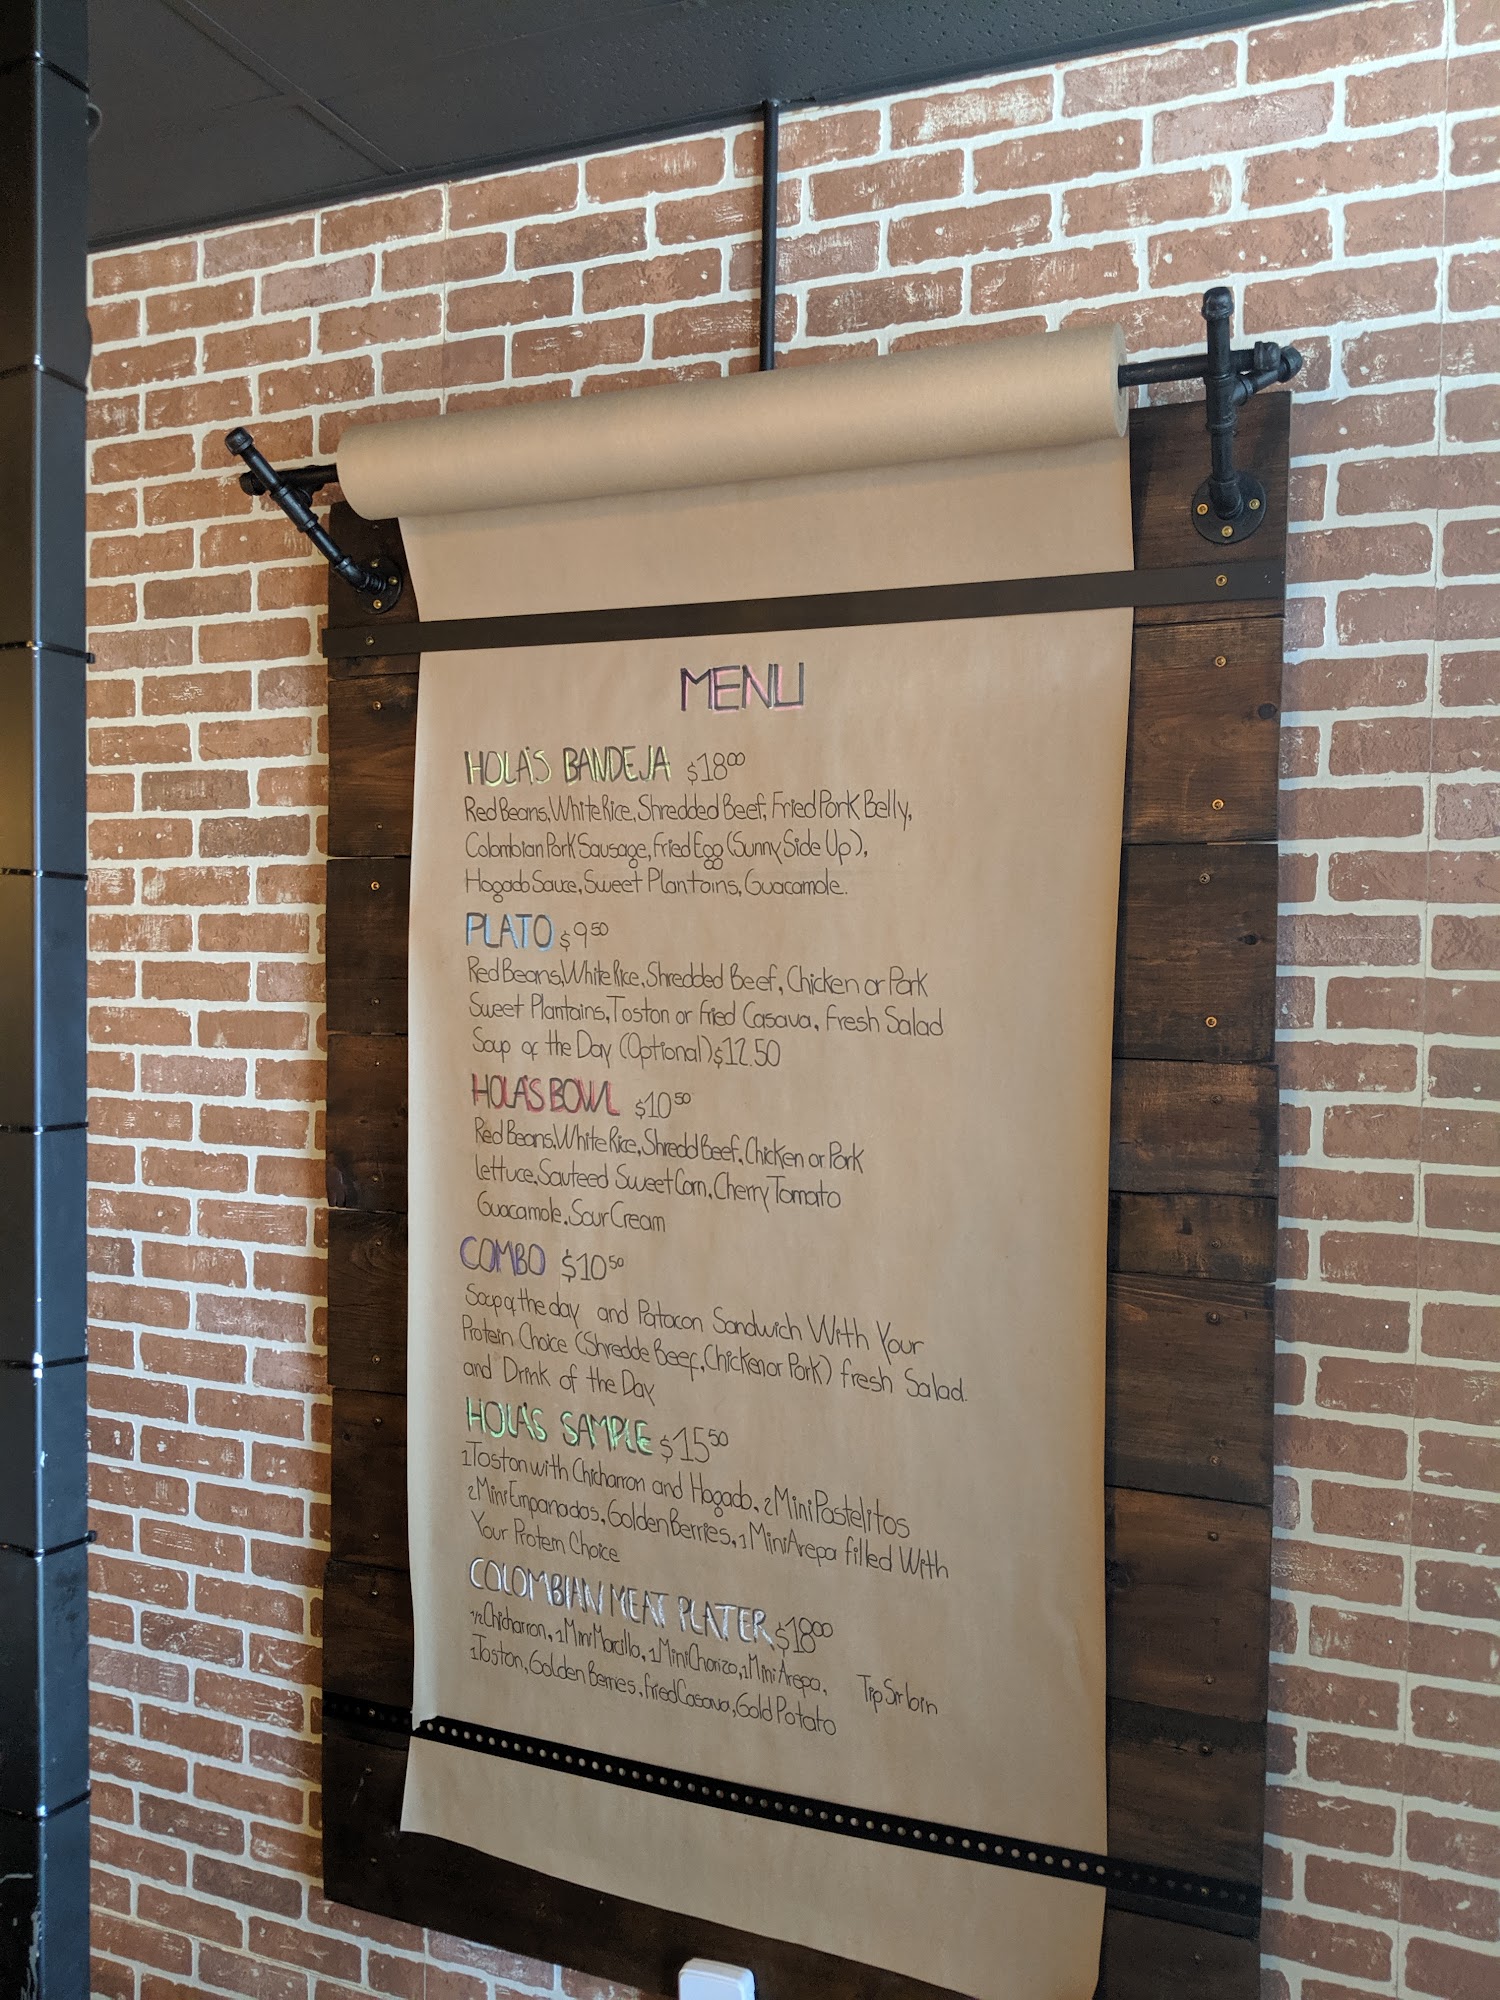 MENU
HOLA'S BANDEJA $18⁰⁰
Red Beans, White Rice, Shredded Beef, Fried Pork Belly,
Colombian Pork Sausage, Fried Egg (Sunny Side Up),
Hogado Sauce, Sweet Plantains, Guacamole.
PLATO $9⁵⁰
Red Beans, White Rice, Shredded Beef, Chicken or Pork
Sweet Plantains, Toston or Fried Casava, Fresh Salad
Soup of the Day (Optional) $12.50
HOLA'S BOWL $10⁵⁰
Red Beans, White Rice, Shredd Beef, Chicken or Pork
Lettuce, Sauteed Sweet Corn, Cherry Tomato
Guacamole, Sour Cream
COMBO $10⁵⁰
Soup of the day and Patacon Sandwich With Your
Protein Choice (Shredde Beef, Chicken or Pork) Fresh Salad.
and Drink of the Day
HOLA'S SAMPLE $15⁵⁰
1 Toston with Chicharron and Hogado, 2 Mini Pastelitos
2 Mini Empanadas, Golden Berries, 1 Mini Arepa filled With
Your Protein Choice
COLOMBIAN MEAT PLATER $18⁰⁰
1/2 Chicharron, 1 Mini Morcilla, 1 Mini Chorizo, 1 Mini Arepa, Trip Sirloin
1 Toston, Golden Berries, Fried Casava, Gold Potato